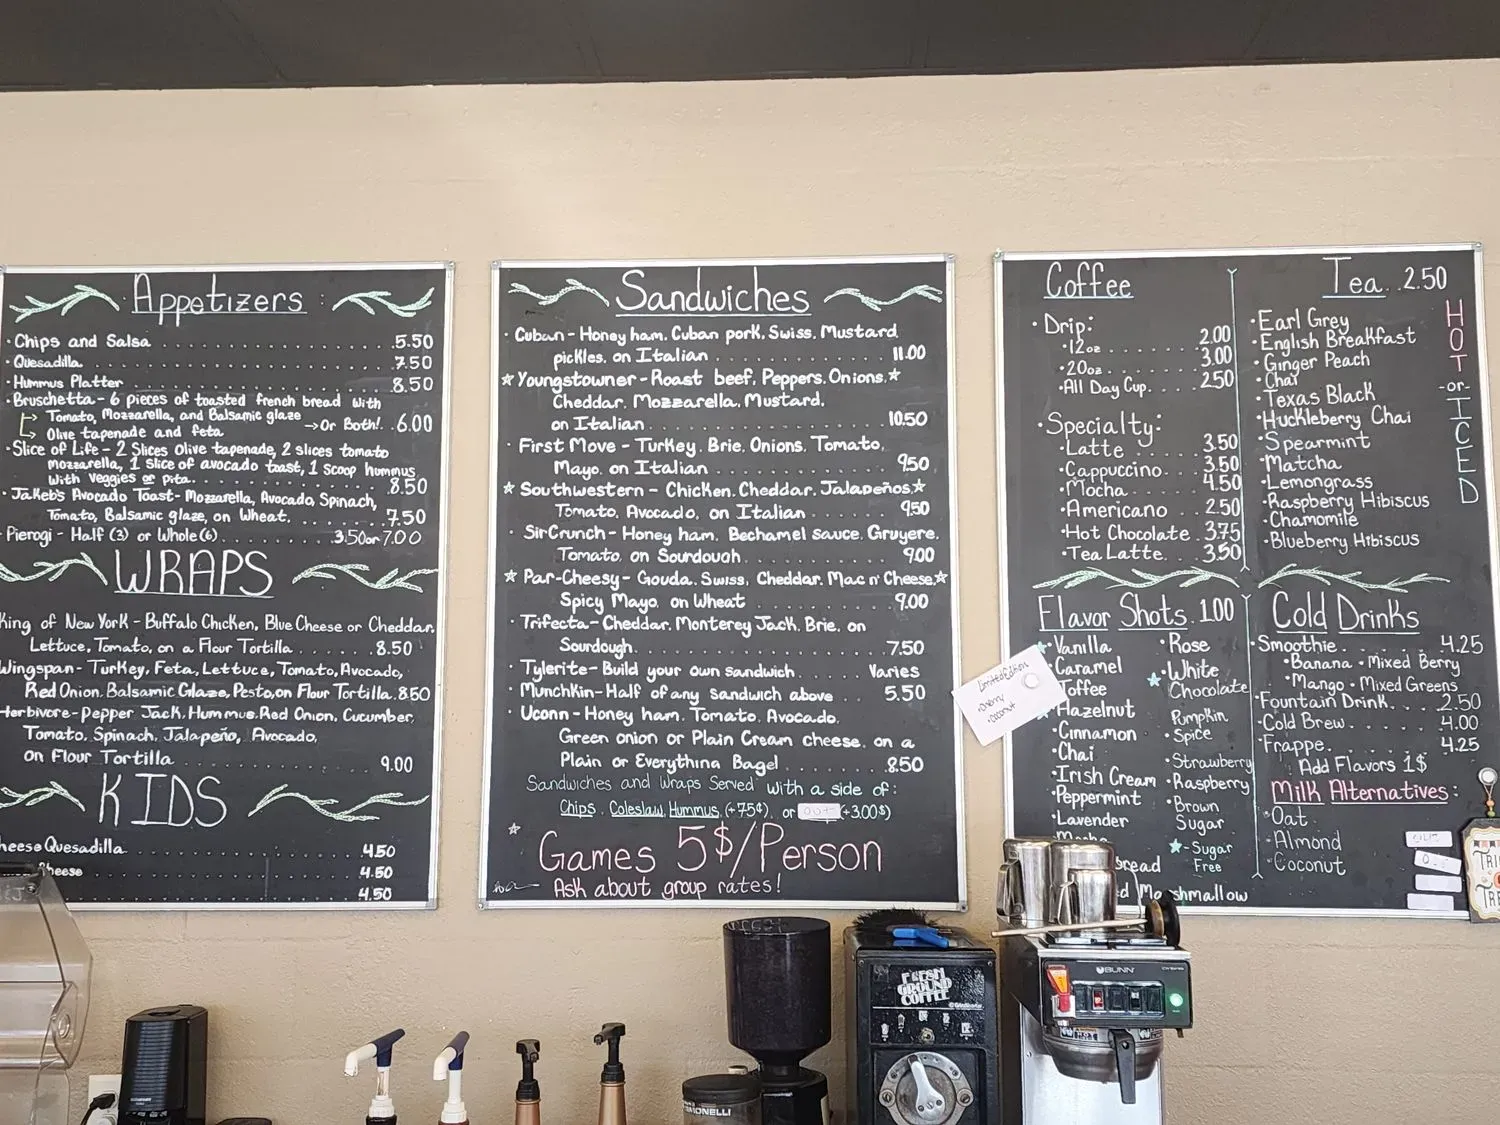 Appetizers :
· Chips and Salsa . . . . . . . . . . . . . . . . 5.50
· Quesadilla . . . . . . . . . . . . . . . . . . 7.50
· Hummus Platter . . . . . . . . . . . . . . . . 8.50
· Bruschetta - 6 pieces of toasted french bread with
Tomato, Mozzarella, and Balsamic glaze
→ Or Both! . 6.00
Olive tapenade and feta
· Slice of Life - 2 Slices Olive tapenade, 2 slices tomato
mozzarella, 1 slice of avocado toast, 1 scoop hummus
with veggies or pita. . . . . . . . . . . . 8.50
· Jakeb's Avocado Toast - Mozzarella, Avocado, Spinach,
Tomato, Balsamic glaze, on Wheat. . . . . . . . 7.50
Pierogi - Half (3) or Whole (6) . . . . . . . . 3.50 or 7.00
WRAPS
King of New York - Buffalo Chicken, Blue Cheese or Cheddar,
Lettuce, Tomato, on a Flour Tortilla . . . . . . 8.50
Wingspan - Turkey, Feta, Lettuce, Tomato, Avocado,
Red Onion, Balsamic Glaze, Pesto, on Flour Tortilla. 8.50
Herbivore - Pepper Jack, Hummus, Red Onion, Cucumber,
Tomato, Spinach, Jalapeño, Avocado,
on Flour Tortilla 9.00
KIDS
Cheese Quesadilla . . . . . . . . . . . 4.50
Cheese . . . . . . . . . . . 4.50
4.50
Sandwiches
· Cuban - Honey ham, Cuban pork, Swiss, Mustard
pickles, on Italian . . . . . . . . . . . . 11.00
☆ Youngstowner - Roast beef, Peppers, Onions, ☆
Cheddar, Mozzarella, Mustard,
on Italian . . . . . . . . . . . . . . 10.50
· First Move - Turkey, Brie, Onions, Tomato,
Mayo, on Italian . . . . . . . . . . . 9.50
☆ Southwestern - Chicken, Cheddar, Jalapeños, ☆
Tomato, Avocado, on Italian . . . . . . 9.50
· Sir Crunch - Honey ham, Bechamel sauce, Gruyere,
Tomato, on Sourdough . . . . . . . . . . 9.00
☆ Par-Cheesy - Gouda, Swiss, Cheddar, Mac n' Cheese, ☆
Spicy Mayo, on Wheat . . . . . . . . . 9.00
· Trifecta - Cheddar, Monterey Jack, Brie, on
Sourdough . . . . . . . . . . . . . . 7.50
· Tylerite - Build your own sandwich . . . . . Varies
· Munchkin - Half of any sandwich above . . . . 5.50
· Uconn - Honey ham, Tomato, Avocado,
Green onion or Plain Cream cheese, on a
Plain or Everything Bagel . . . . . . . 8.50
Sandwiches and Wraps Served with a side of:
Chips, Coleslaw, Hummus (+75¢), or out (+3.00$)
☆ Games 5$/Person
Ask about group rates!
Limited Edition
· Cherry
· Coconut
Coffee
· Drip:
· 12oz . . . . . . . . 2.00
· 20oz . . . . . . . . 3.00
· All Day Cup . . . . . 2.50
· Specialty:
· Latte . . . . . . . 3.50
· Cappuccino . . . . . 3.50
· Mocha . . . . . . . 4.50
· Americano . . . . . 2.50
· Hot Chocolate . 3.75
· Tea Latte . . . . . 3.50
Tea . . 2.50
· Earl Grey
· English Breakfast
· Ginger Peach
· Chai
· Texas Black
· Huckleberry Chai
· Spearmint
· Matcha
· Lemongrass
· Raspberry Hibiscus
· Chamomile
· Blueberry Hibiscus
HOT
-or-
ICED
Flavor Shots . 1.00
☆ Vanilla
· Caramel
Toffee
☆ Hazelnut
· Cinnamon
· Chai
· Irish Cream
· Peppermint
· Lavender
· Mocha
bread
Marshmallow
· Rose
☆ · White
Chocolate
· Pumpkin
Spice
· Strawberry
· Raspberry
· Brown
Sugar
☆ - Sugar
Free
Cold Drinks
· Smoothie . . . . . . . . 4.25
· Banana · Mixed Berry
· Mango · Mixed Greens
· Fountain Drink . . . . . 2.50
· Cold Brew . . . . . . . 4.00
· Frappe . . . . . . . . 4.25
Add Flavors 1$
Milk Alternatives:
· Oat
· Almond
· Coconut
out
FRESH
GROUND
COFFEE
BUNN
TRI
TRE